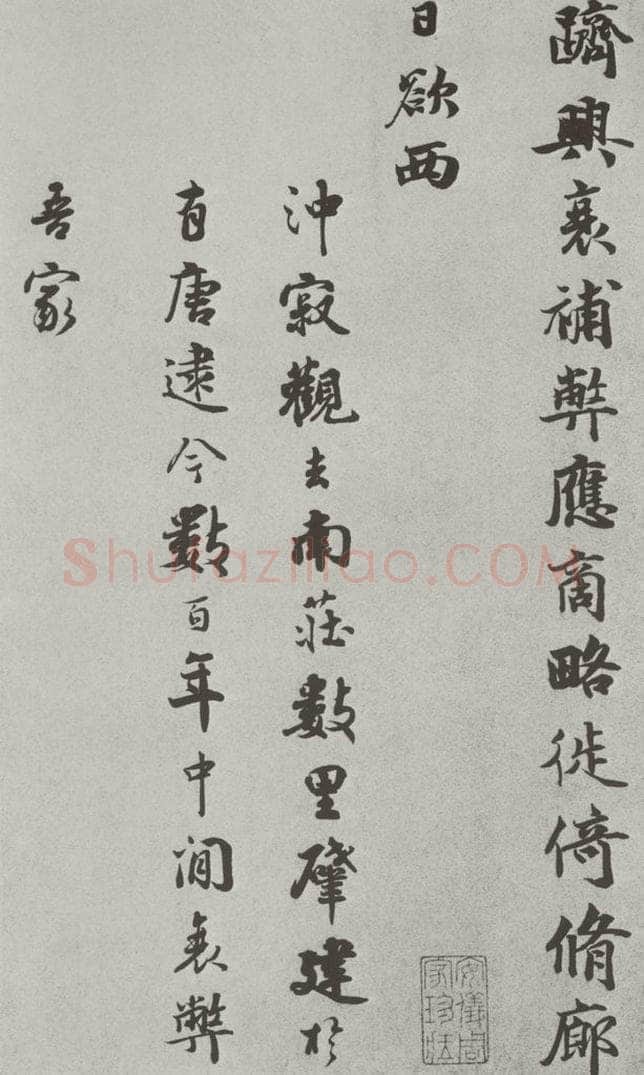 躋興衰補弊應商略徙倚脩廊
日欲西
沖寂觀去南莊數里肇建於
有唐逮今數百年中間衰弊
吾家
安儀周家珍藏
Shufaziliao.COM